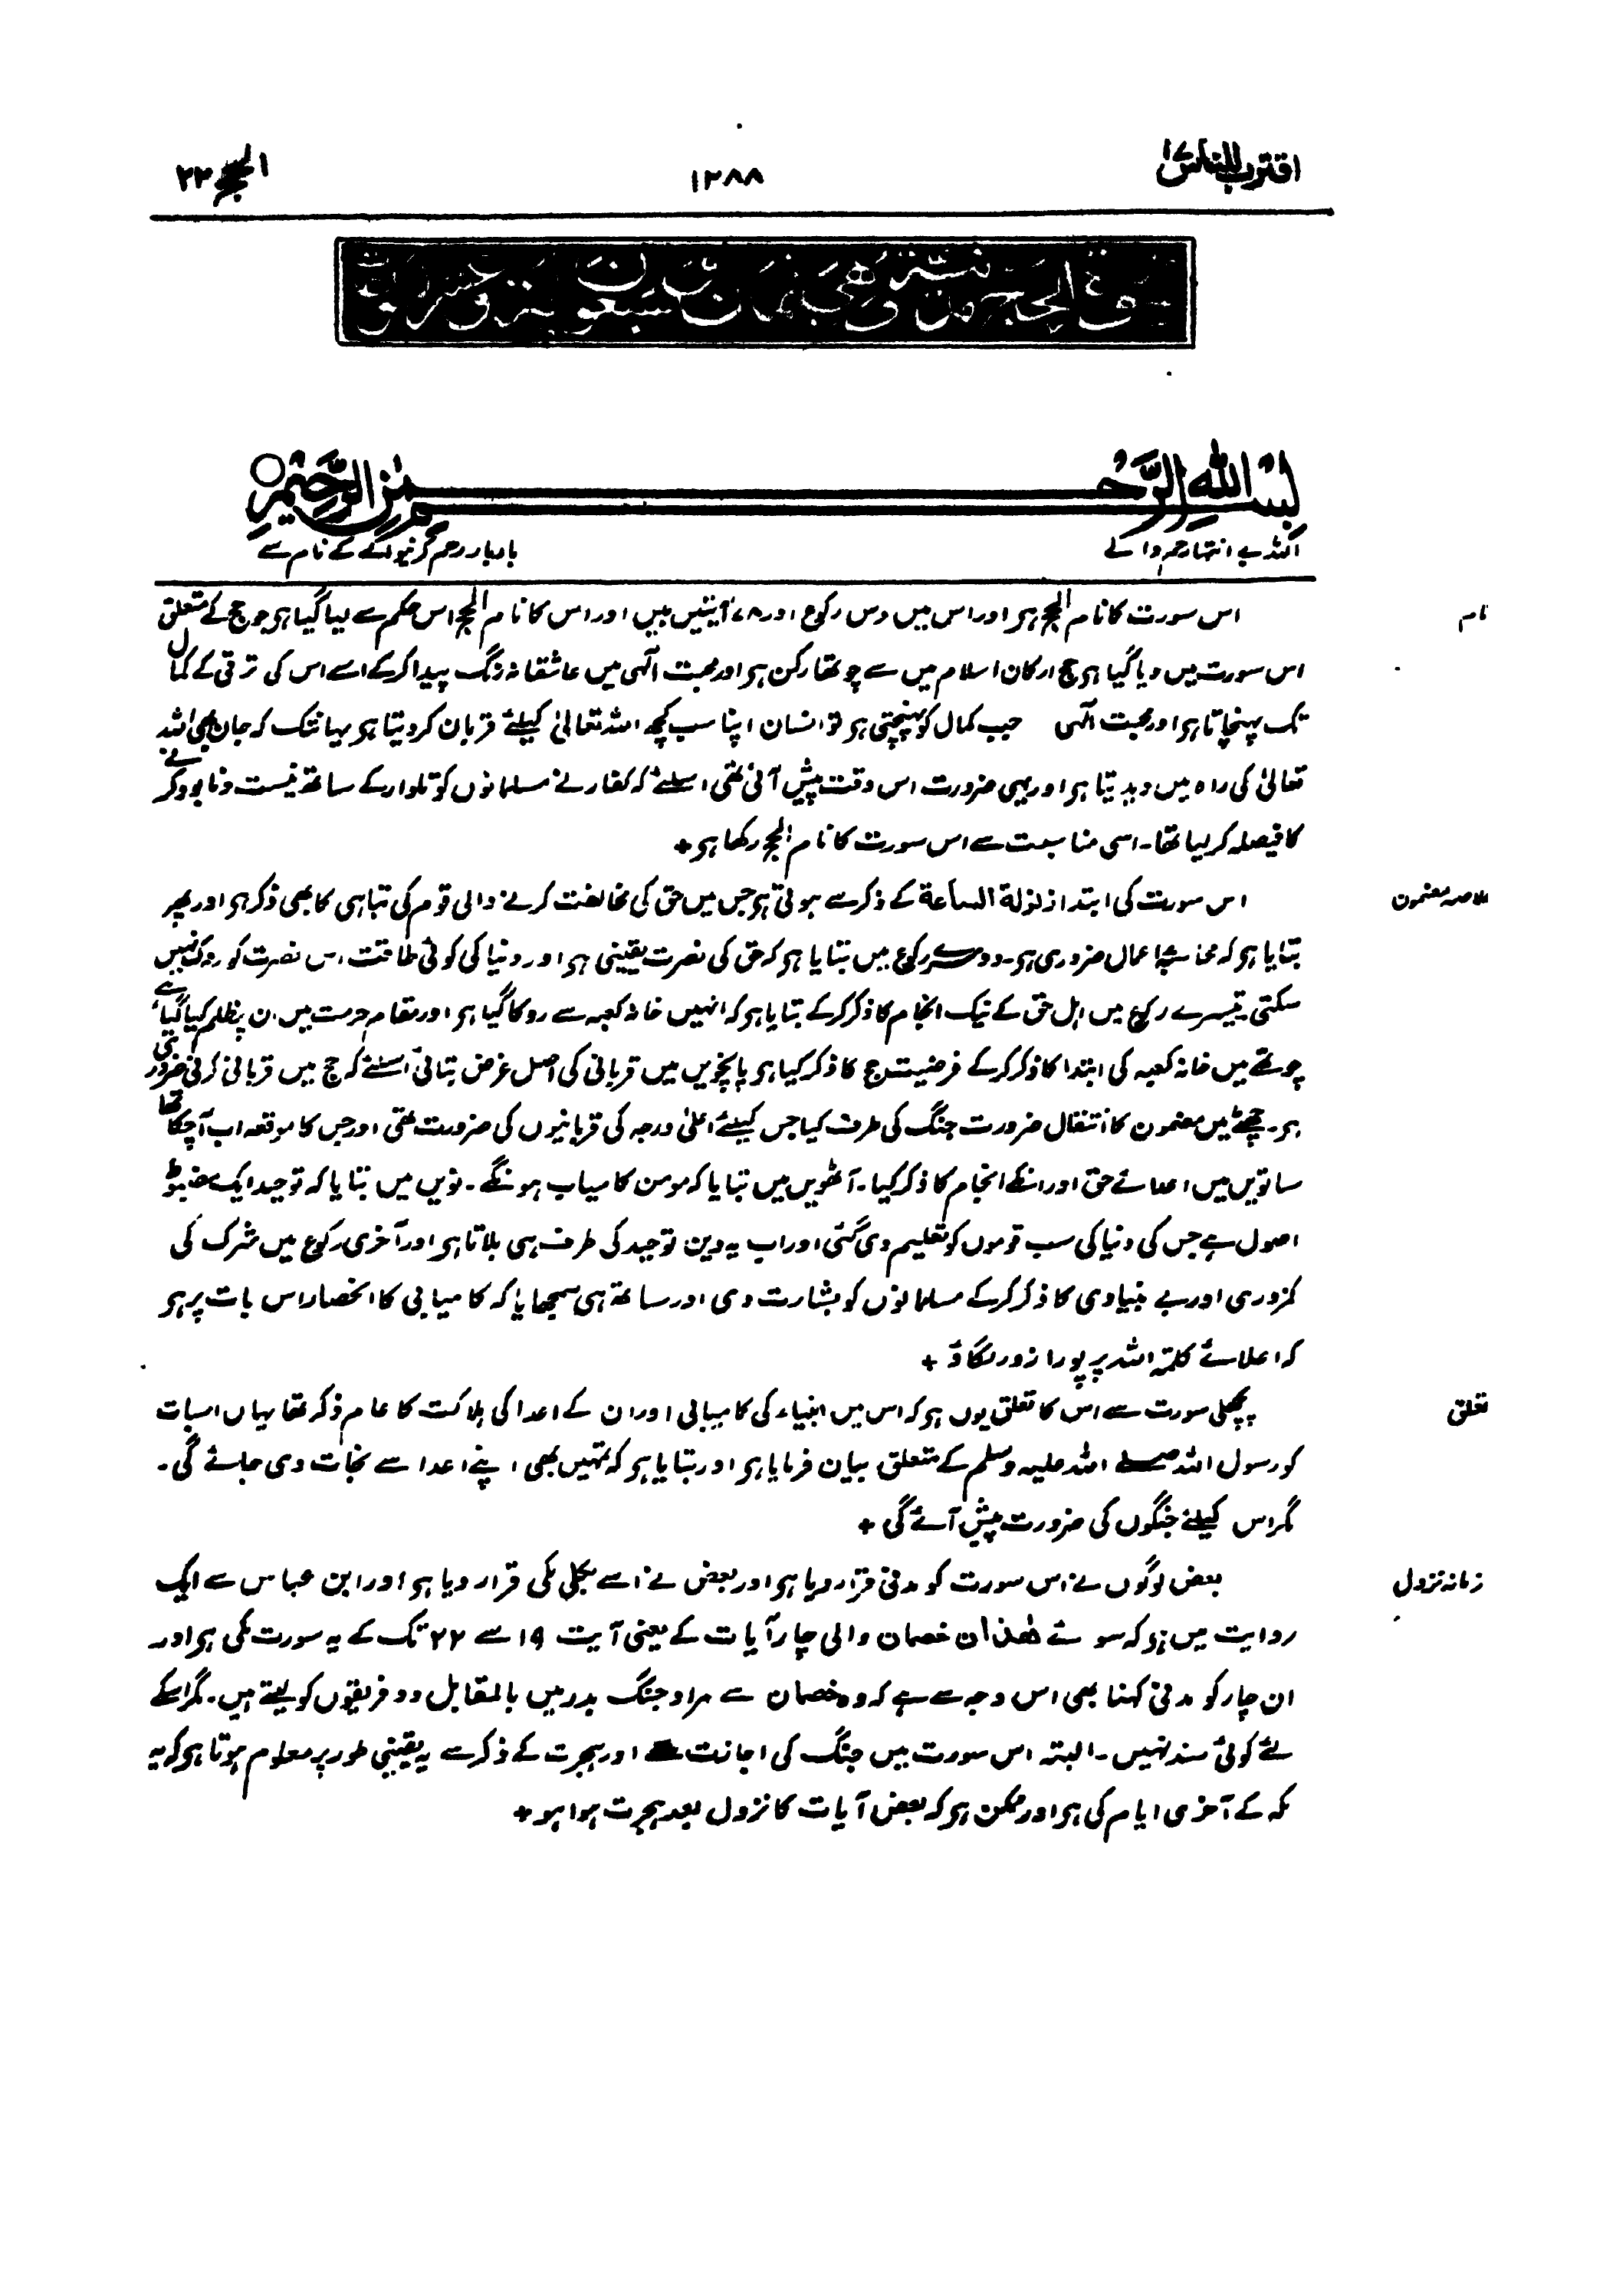 اقترب للناس ۱۷
۱۲۸۸
الحج ۲۲
بِسْمِ اللّٰهِ الرَّحْمٰنِ الرَّحِيْمِ
اللہ بے انتہا رحم والے بار بار رحم کرنیوالے کے نام سے
نام
اس سورت کا نام الحج ہو اور اس میں دس رکوع اور ۷۸ آیتیں ہیں اور اس کا نام الحج اس حکم سے لیا گیا ہو جو حج کے متعلق
اس سورت میں دیا گیا ہو حج ارکان اسلام میں سے چوتھا رکن ہو اور محبت الٰہی میں عاشقانہ رنگ پیدا کرکے اسے اس کی ترقی کے کمال
تک پہنچاتا ہو اور محبت الٰہی جب کمال کو پہنچتی ہو تو انسان اپنا سب کچھ اللہ تعالیٰ کیلئے قربان کر دیتا ہو یہانتک کہ جان بھی اللہ
تعالیٰ کی راہ میں دیدیتا ہو اور یہی ضرورت اس وقت پیش آئی تھی اسلئے کہ کفار نے مسلمانوں کو تلوار کے ساتھ نیست و نابود کرنے
کا فیصلہ کر لیا تھا۔ اسی مناسبت سے اس سورت کا نام الحج رکھا ہو +
خلاصہ مضمون
اس سورت کی ابتدا زلزلة الساعة کے ذکر سے ہوتی ہو جس میں حق کی مخالفت کرنے والی قوم کی تباہی کا بھی ذکر ہو اور پھر
بتایا ہو کہ محاسبہ اعمال ضروری ہو۔ دوسرے رکوع میں بتایا ہو کہ حق کی نصرت یقینی ہو اور دنیا کی کوئی طاقت اس نصرت کو روک نہیں
سکتی۔ تیسرے رکوع میں اہل حق کے نیک انجام کا ذکر کرکے بتایا ہو کہ انہیں خانہ کعبہ سے روکا گیا ہو اور مقام حرمت میں ان پر ظلم کیا گیا ہے
چوتھے میں خانہ کعبہ کی ابتدا کا ذکر کرکے فرضیت حج کا ذکر کیا ہو پانچویں میں قربانی کی اصل غرض بتائی اسلئے کہ حج میں قربانی کرنی ضروری
ہو۔ چھٹے میں مضمون کا انتقال ضرورت جنگ کی طرف کیا جس کیلئے اعلیٰ درجہ کی قربانیوں کی ضرورت تھی اور جس کا موقعہ اب آچکا تھا
ساتویں میں اعدائے حق اور انکے انجام کا ذکر کیا۔ آٹھویں میں بتایا کہ مومن کامیاب ہونگے۔ نویں میں بتایا کہ توحید ایک مضبوط
اصول ہے جس کی دنیا کی سب قوموں کو تعلیم دی گئی اور اب یہ دین توحید کی طرف ہی بلاتا ہو اور آخری رکوع میں شرک کی
کمزوری اور بے بنیادی کا ذکر کرکے مسلمانوں کو بشارت دی اور ساتھ ہی سمجھایا کہ کامیابی کا انحصار اس بات پر ہو
کہ اعلائے کلمۃ اللہ پر پورا زور لگاؤ +
تعلق
پچھلی سورت سے اس کا تعلق یوں ہو کہ اس میں انبیاء کی کامیابی اور ان کے اعدا کی ہلاکت کا عام ذکر تھا یہاں اسبات
کو رسول اللہ صلے اللہ علیہ وسلم کے متعلق بیان فرمایا ہو اور بتایا ہو کہ تمہیں بھی اپنے اعدا سے نجات دی جائے گی۔
مگر اس کیلئے جنگوں کی ضرورت پیش آئے گی +
زمانہ نزول
بعض لوگوں نے اس سورت کو مدنی قرار دیا ہو اور بعض نے اسے بکلی مکی قرار دیا ہو اور ابن عباس سے ایک
روایت میں ہو کہ سوائے هٰذان خصمان والی چار آیات کے یعنی آیت ۱۹ سے ۲۲ تک کے یہ سورت مکی ہو اور
ان چار کو مدنی کہنا بھی اس وجہ سے ہے کہ وہ خصمان سے مراد جنگ بدر میں بالمقابل دو فریقوں کو لیتے ہیں۔ مگر اسکے
لئے کوئی سند نہیں۔ البتہ اس سورت میں جنگ کی اجازت اور ہجرت کے ذکر سے یہ یقینی طور پر معلوم ہوتا ہو کہ یہ
مکہ کے آخری ایام کی ہو اور ممکن ہو کہ بعض آیات کا نزول بعد ہجرت ہوا ہو +